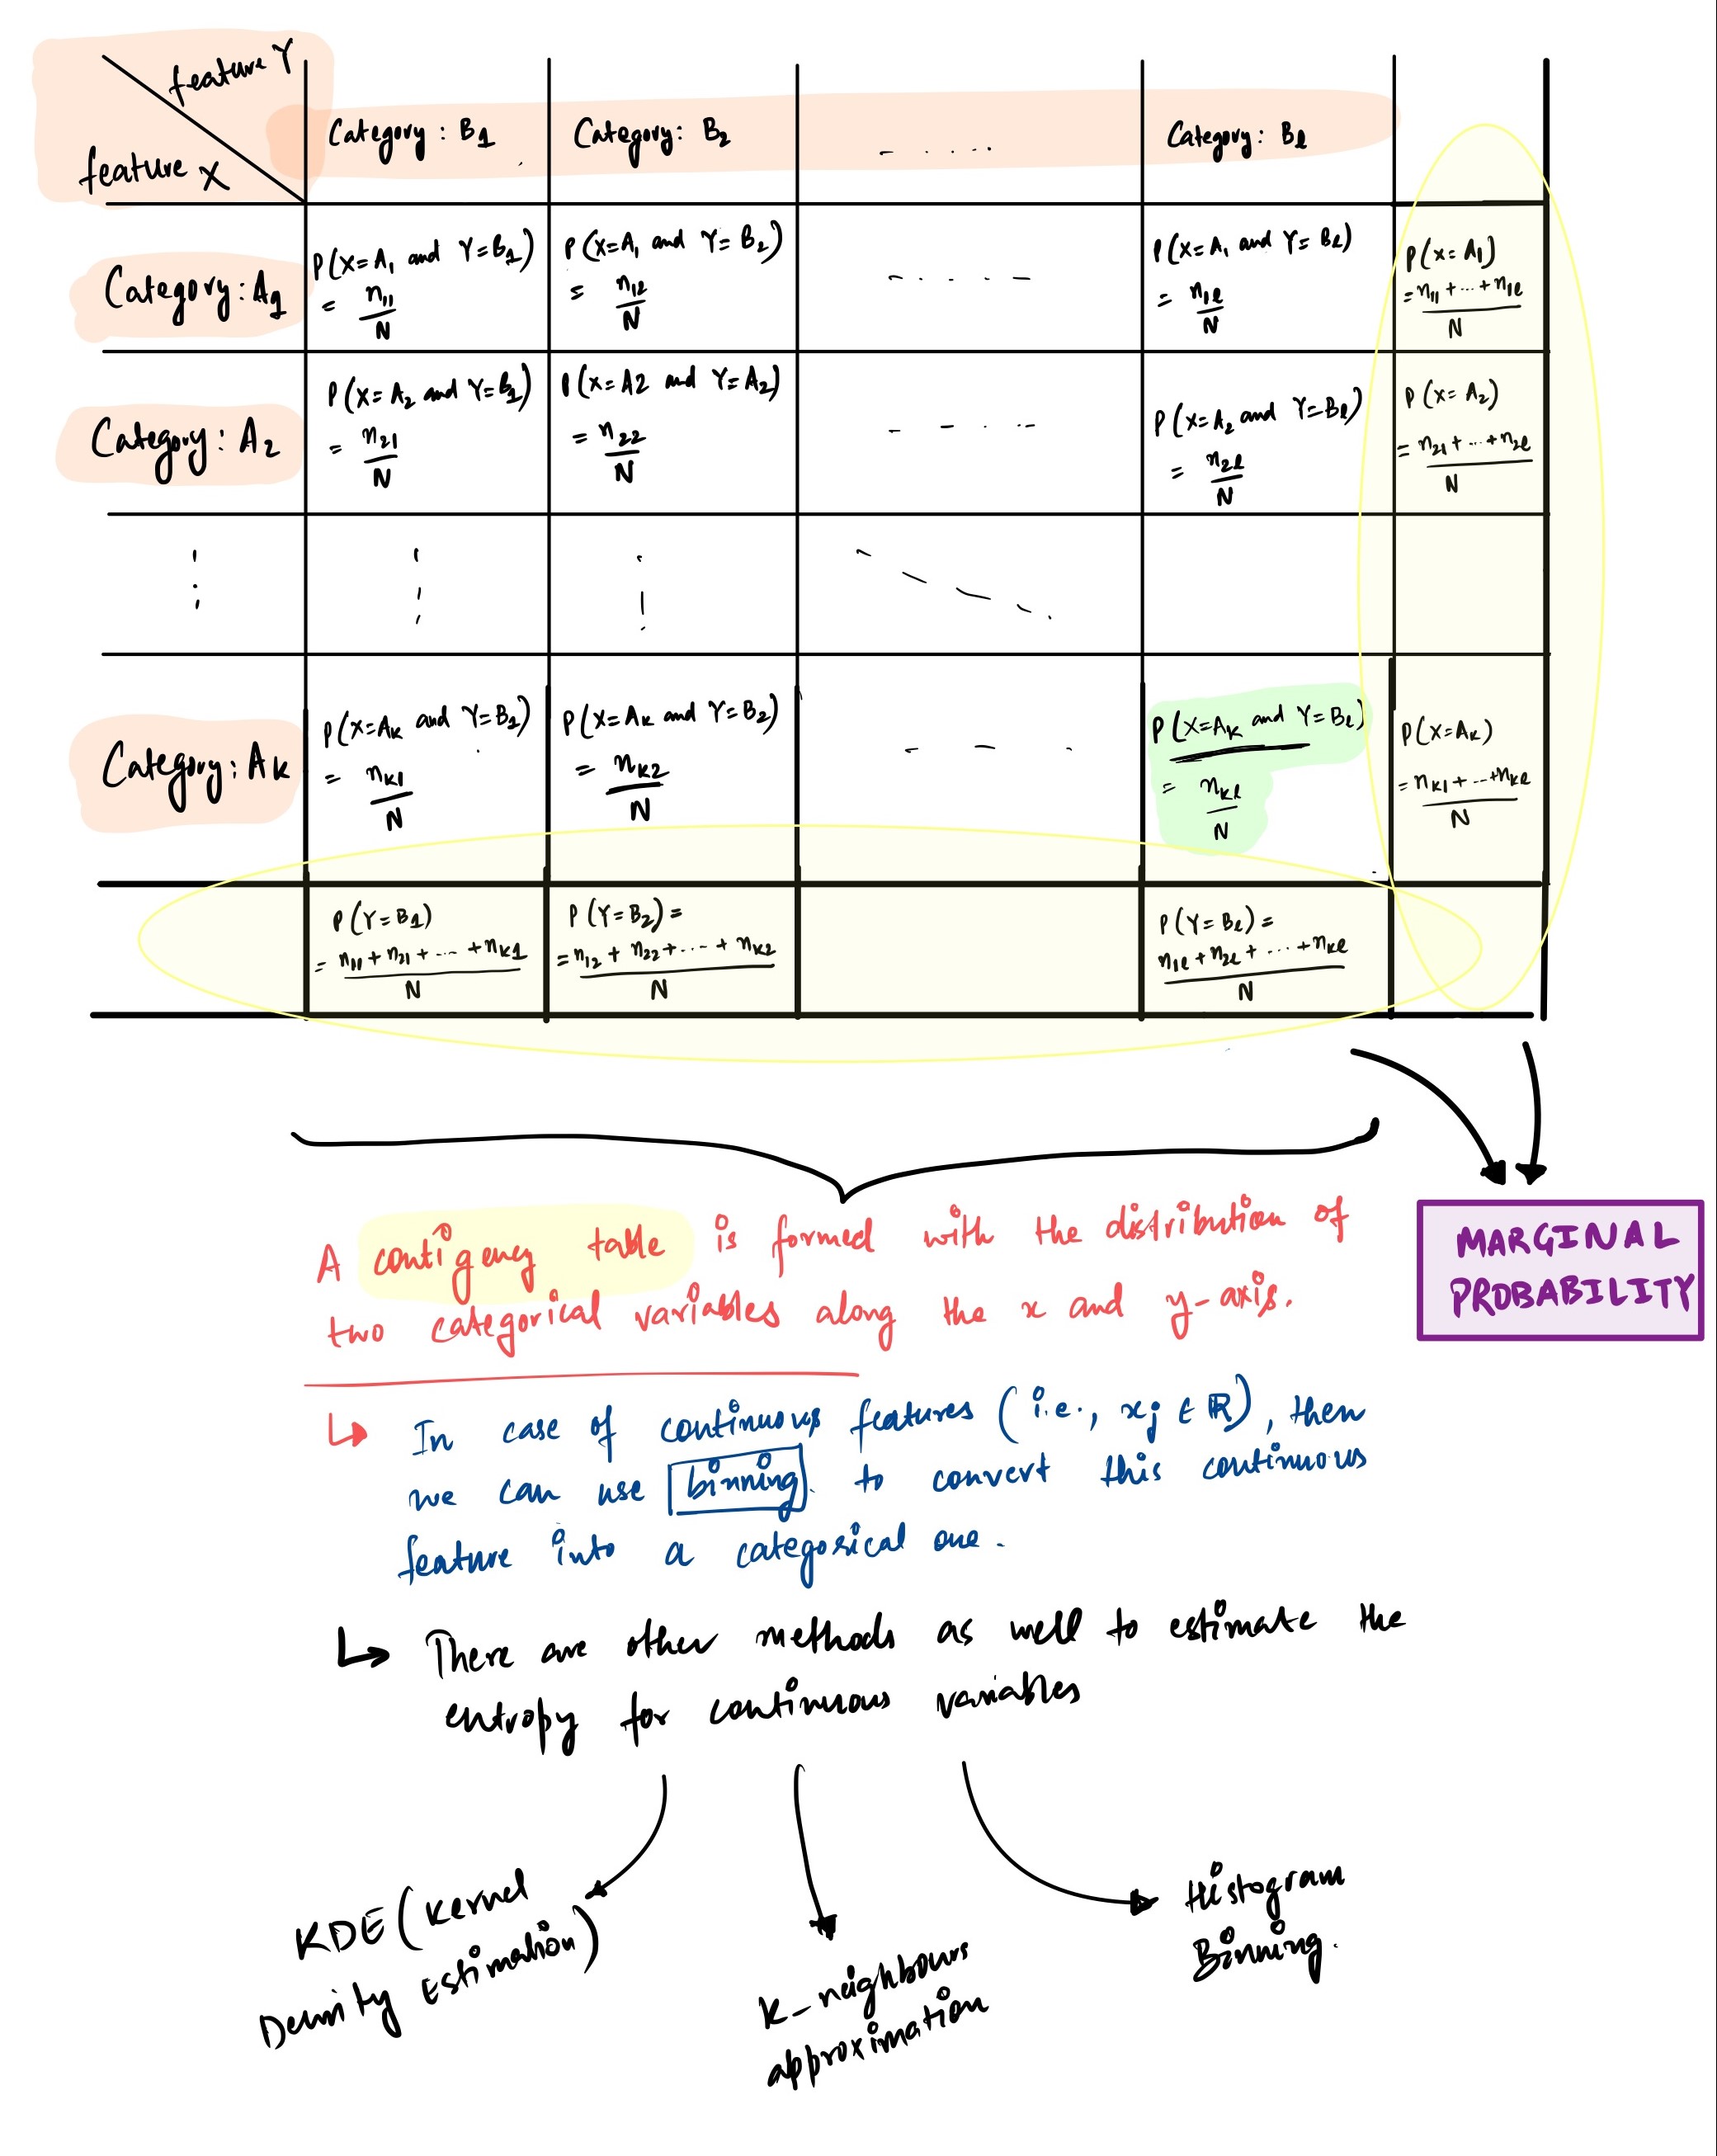 feature Y
feature X
Category : B1
Category : B2
- . . . .
Category : Bl
Category : A1
P(X=A1 and Y=B1)
= n11/N
P(X=A1 and Y=B2)
= n12/N
- . . . -
P(X=A1 and Y=Bl)
= n1l/N
P(X=A1)
= n11 + ... + n1l / N
Category : A2
P(X=A2 and Y=B1)
= n21/N
P(X=A2 and Y=A2)
= n22/N
- . . . -
P(X=A2 and Y=Bl)
= n2l/N
P(X=A2)
= n21 + ... + n2l / N
Category : AK
P(X=AK and Y=B1)
= nK1/N
P(X=AK and Y=B2)
= nK2/N
- - -
P(X=AK and Y=Bl)
= nKl/N
P(X=AK)
= nK1 + ... + nKl / N
P(Y=B1)
= n11 + n21 + ... + nK1 / N
P(Y=B2) =
= n12 + n22 + ... + nK2 / N
P(Y=Bl) =
n1l + n2l + ... + nKl / N
MARGINAL
PROBABILITY
A contigency table is formed with the distribution of
two categorical variables along the x and y-axis.
↳ In case of continuous features (i.e., xj ∈ ℝ), then
we can use binning to convert this continuous
feature into a categorical one.
↳ There are other methods as well to estimate the
entropy for continuous variables
KDE (Kernel
Density Estimation)
K-neighbours
approximation
Histogram
Binning.